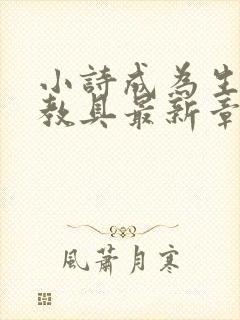 小詩成為生
教具最新章
風蕭月寒